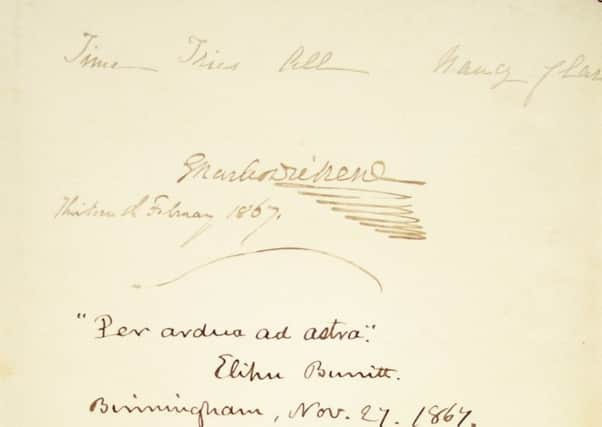 Time Tries All Nancy
Charles Dickens
Thirteenth February 1867.
"Per ardua ad astra".
Elihu Burritt.
Birmingham, Nov. 27. 1867.